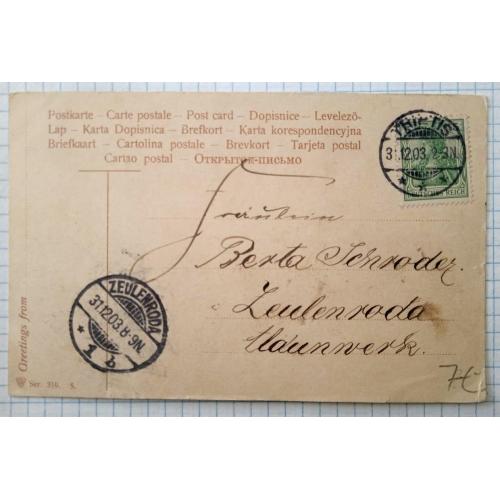 Postkarte – Carte postale – Post card – Dopisnice – Levelező-
Lap – Karta Dopisnica – Brefkort – Karta korespondencyjna
Briefkaart – Cartolina postale – Brevkort – Tarjeta postal
Cartao postal – Открытое-письмо
TRIPTIS
31.12.03. 8-9N.
DEUTSCHES REICH
Fräulein
Berta Schröder.
Zeulenroda
ZEULENRODA
31.12.03. 8-9N.
* 1 b
Greetings from
Ser. 310. S.